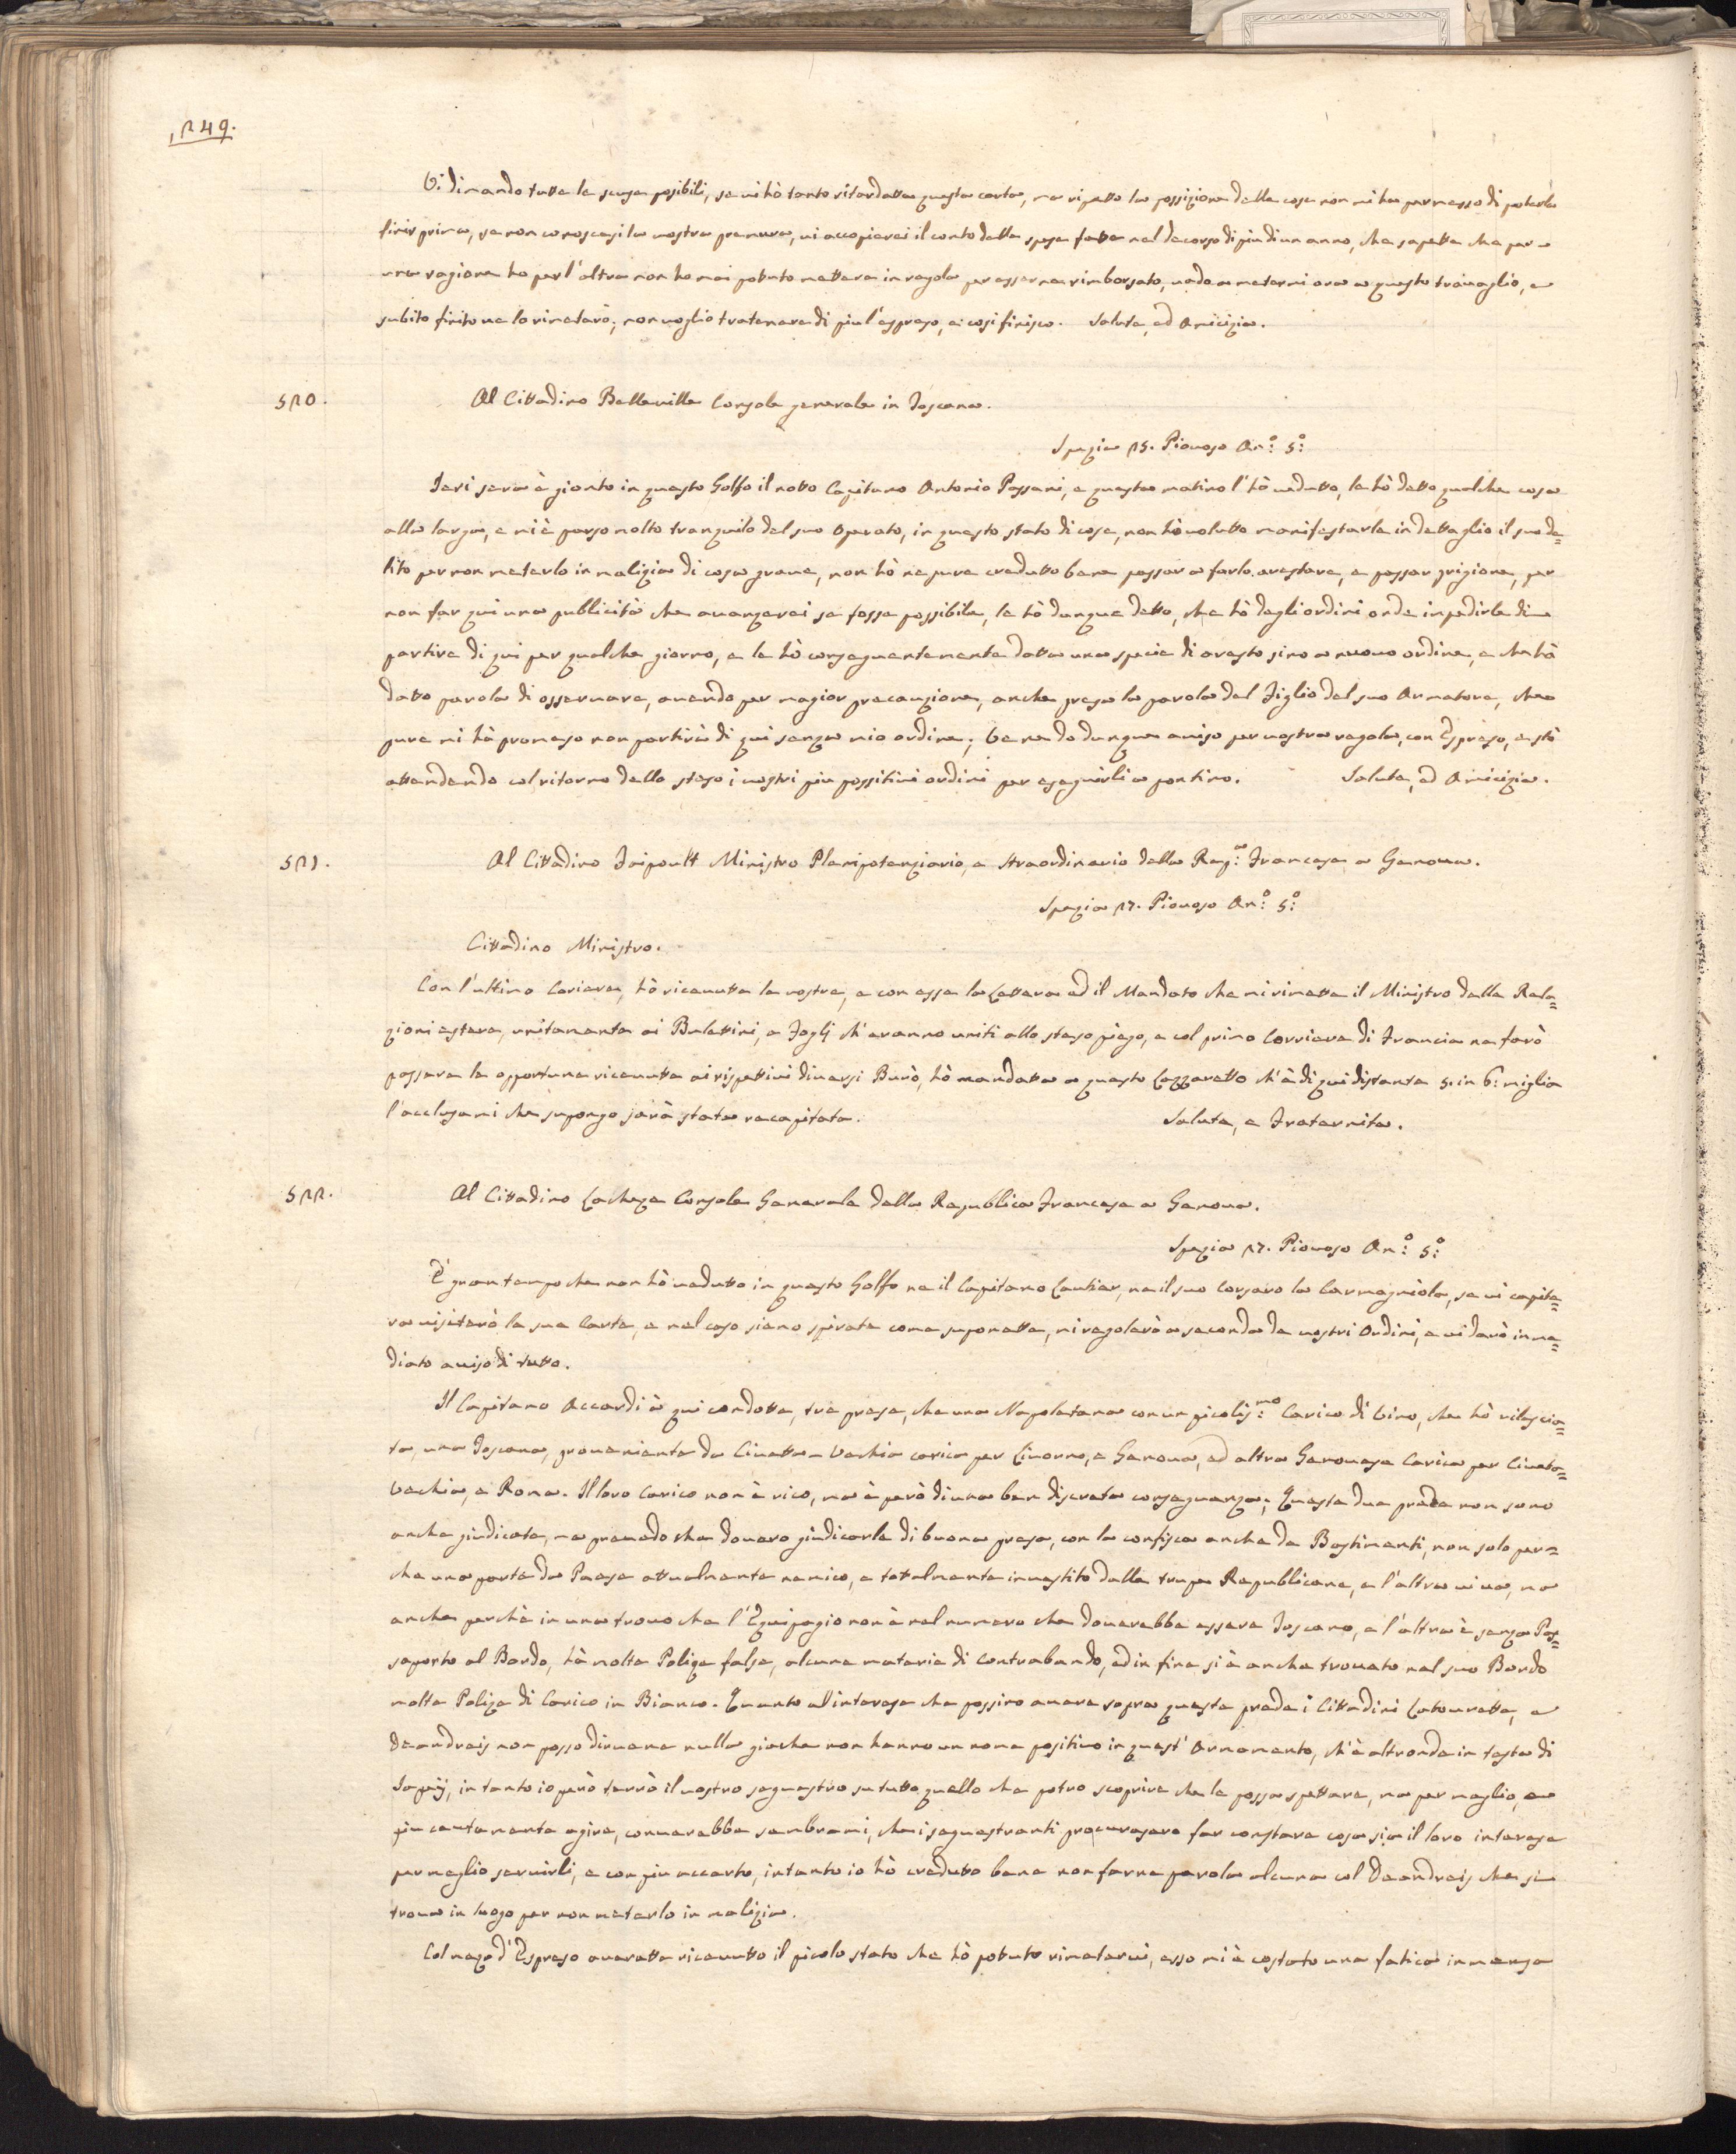 1249.
Vi dimando tutte le scuse posibili, se vi hò tanto ritardatta questa carta, ma ripetto la possizione delle cose non mi ha permesso di poterla
finir prima, se non conoscesi la vostra premura, vi accopierei il conto delle spese fatte nel decorso di piu di un anno, che sapette che per
una ragione ho per l'altra non ho mai potuto mettere in regola per esserne rimborsato, vado a metermi ora a questo travaglio, e
subito finito ve lo rimeterò; non voglio tratenere di piu l'espreso, e cosi finisco. Salute, ed Amicizia.
520.
Al Cittadino Belleville Console generale in Toscana.
Spezia 25. Piovoso An:º 5:º
Jeri sera è gionto in questo Golfo il notto Capitano Antonio Passani, e questa matino l'hò vedutto, le hò detto qualche cosa
alla larga, e mi è parso molto tranquilo del suo operato, in questo stato di cose, non hò volutto manifestarle in dettaglio il suo de=
lito per non meterlo in malizia di cosa grave, non hò ne pure credutto bene passar a farlo arestare, e passar prigione, per
non far qui una publicità che avanzerei se fosse possibile, le hò dunque detto, che hò degli ordini onde impedirle di
partire di qui per qualche giorno, e le hò conseguentemente datta una specie di aresto sino a nuovo ordine, e che hà
datto parola di osservare, avendo per magior precauzione, anche presa la parola del Figlio del suo Armatore, che
pure mi hà promeso non partirà di qui senza mio ordine; Ve ne do dunque aviso per vostra regola, con Espreso, e stò
attendendo col ritorno dello steso i vostri piu possitivi ordini per eseguirli a pontino. Salute, ed Amicizia.
521.
Al Cittadino Faipoult Ministro Plenipotenziario, e straordinario della Rep:ª Francese a Genova.
Spezia 27. Piovoso An:º 5:º
Cittadino Ministro.
Con l'ultimo Coriere, hò ricevutta la vostra, e con essa la Lettera ed il Mandato che mi rimette il Ministro delle Rela=
zioni estere, unitamente ai Bulettini, e Foglj ch'eranno uniti allo steso piego, e col primo Corriere di Francia ne farò
passare le opportune ricevutte ai rispettivi diversi Burò, hò mandatta a questo Lazzaretto ch'è di qui distante 5. in 6: miglia
l'acclusami che supongo sarà stata recapitata. Salute, e Fraternita.
522.
Al Cittadino Lacheze Console Generale della Republica Francese a Genova.
Spezia 27. Piovoso An:º 5:º
E' gran tempo che non hò vedutto in questo Golfo ne il Capitano Lautier, ne il suo Corsaro la Carmagniola, se vi capite=
ra visiterò le sue Carte, e nel caso siano spirate come suponette, mi regolerò a seconda de vostri Ordini, e vi darò imme=
diato aviso di tutto.
Il Capitano Accardi à qui condotte, tre prese, che una Napoletana con un picolis:mo Carico di Vino, che hò rilascia=
ta, una Toscana, proveniente da Civetta-Vechia carica per Livorno, e Genova, ed altra Genovese Carica per Civeta=
Vechia, e Roma. Il loro Carico non è rico, ma è però di una ben discreta conseguenza; Queste due prede non sono
anche giudicate, ma prevedo che dovero giudicarle di buona presa, con la confisca anche de Bastimenti, non solo per=
che una parte da Paese attualmente nemico, e totalmente investito dalla trupe Republicane, e l'altra vi va, ma
anche perchè in una trovo che l'Equipagio non è nel numero che doverebbe essere Toscano, e l'altra è senza Pas=
saporto al Bordo, hà molte Polize false, alcune materie di Contrabando, ed in fine si è anche trovato nel suo Bordo
molte Polize di Carico in Bianco. Quanto al interese che possino avere sopra queste prede i Cittadini Latourette, e
Deandreis non posso dirvene nulla giache non hanno un nome positivo in quest' Armamento, ch'è altronde in testa di
Sapej, in tanto io però terrò il vostro sequestro su tutto quello che potro scoprire che le possa spettare, ma per meglio, e
piu cautamente agire, converebbe sembrami, che i sequestranti procurasero far constare cosa sia il loro interese
per meglio servirli, e con piu accerto, intanto io hò credutto bene non farne parola alcuna col Deandreis che si
trova in luogo per non meterlo in malizia.
Col mezo d'Espreso averette ricevutto il picolo stato che hò potuto rimetervi, esso mi è costato una fatica immensa